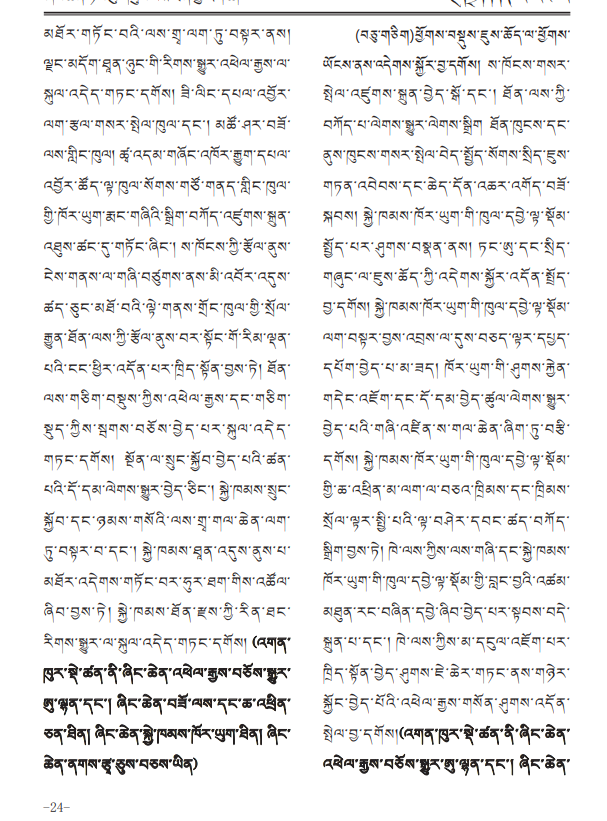 མཐོར་གཏོང་བའི་ལས་གྲྭ་ལག་ཏུ་བསྟར་ནས།
ལྗང་མདོག་ཐུན་ཉུང་གི་རིགས་སྒྱུར་འཕེལ་རྒྱས་ལ་
སྐུལ་འདེད་གཏང་དགོས། ཟི་ལིང་དཔལ་འབྱོར་
ལག་རྩལ་གསར་སྤེལ་ཁུལ་དང་། མཚོ་ཤར་བཟོ་
ལས་གླིང་ཁུལ། ཚྭ་འདམ་གཞོང་འཁོར་རྒྱུག་དཔལ་
འབྱོར་ཚོད་ལྟ་ཁུལ་སོགས་གཙོ་གནད་གླིང་ཁུལ་
གྱི་ཁོར་ཡུག་རྨང་གཞིའི་སྒྲིག་བཀོད་འཛུགས་སྐྲུན་
འཐུས་ཚང་དུ་གཏོང་ཞིང་། ས་ཁོངས་ཀྱི་རྩོལ་ནུས་
ངེས་གནས་ལ་གཞི་བཙུགས་ནས་མི་འབོར་འདུས་
ཚད་ཅུང་མཐོ་བའི་ལྟེ་གནས་གྲོང་ཁུལ་གྱི་སྲོལ་
རྒྱུན་ཐོན་ལས་ཀྱི་རྩོལ་ནུས་བར་སྟོང་གོ་རིམ་ལྡན་
པའི་ངང་ཕྱིར་འདོན་པར་ཁྲིད་སྟོན་བྱས་ཏེ། ཐོན་
ལས་གཅིག་བསྡུས་ཀྱིས་འཕེལ་རྒྱས་དང་གཅིག་
སྡུད་ཀྱིས་སྦགས་བཅོས་བྱེད་པར་སྐུལ་འདེད་
གཏང་དགོས། སྔོན་ལ་སྲུང་སྐྱོབ་བྱེད་པའི་ཚན་
པའི་དོ་དམ་ལེགས་སྒྱུར་བྱེད་ཅིང་། སྐྱེ་ཁམས་སྲུང་
སྐྱོབ་དང་ཉམས་གསོའི་ལས་གྲྭ་གལ་ཆེན་ལག་
ཏུ་བསྟར་བ་དང་། སྐྱེ་ཁམས་ཐུན་འདུས་ནུས་པ་
མཐོར་འདེགས་གཏོང་བར་ཧུར་ཐག་གིས་འཚོལ་
ཞིབ་བྱས་ཏེ། སྐྱེ་ཁམས་ཐོན་རྫས་ཀྱི་རིན་ཐང་
རིགས་སྒྱུར་ལ་སྐུལ་འདེད་གཏང་དགོས། (འགན་
ཁུར་སྡེ་ཚན་ནི་ཞིང་ཆེན་འཕེལ་རྒྱས་བཅོས་སྒྱུར་
ཨུ་ལྷན་དང་། ཞིང་ཆེན་བཟོ་ལས་དང་ཆ་འཕྲིན་
ཅན་ཐིན། ཞིང་ཆེན་སྐྱེ་ཁམས་ཁོར་ཡུག་ཐིན། ཞིང་
ཆེན་ནགས་རྩྭ་ཅུས་བཅས་ཡིན)
(བཅུ་གཅིག)ཕྱོགས་བསྡུས་ཇུས་ཚོད་ལ་ཕྱོགས་
ཡོངས་ནས་འདེགས་སྐྱོར་བྱ་དགོས། ས་ཁོངས་གསར་
སྤེལ་འཛུགས་སྐྲུན་བྱེད་སྒོ་དང་། ཐོན་ལས་ཀྱི་
བཀོད་པ་ལེགས་སྒྱུར་ལེགས་སྒྲིག ཐོན་ཁུངས་དང་
ནུས་ཁུངས་གསར་སྤེལ་བེད་སྤྱོད་སོགས་སྲིད་ཇུས་
གཏན་འབེབས་དང་ཆེད་དོན་འཆར་འགོད་བཟོ་
སྐབས། སྐྱེ་ཁམས་ཁོར་ཡུག་གི་ཁུལ་དབྱེ་ལྟ་སྡོམ་
སྤྱོད་པར་ཤུགས་བསྣན་ནས། ཏང་ཨུ་དང་སྲིད་
གཞུང་ལ་ཇུས་ཚོད་ཀྱི་འདེགས་སྐྱོར་འདོན་སྤྲོད་
བྱ་དགོས། སྐྱེ་ཁམས་ཁོར་ཡུག་གི་ཁུལ་དབྱེ་ལྟ་སྡོམ་
ལག་བསྟར་བྱས་འབྲས་ལ་དུས་བཅད་ལྟར་དཔྱད་
དཔོག་བྱེད་པ་མ་ཟད། ཁོར་ཡུག་གི་ཤུགས་རྐྱེན་
གདེང་འཇོག་དང་དོ་དམ་བྱེད་ཚུལ་ལེགས་སྒྱུར་
བྱེད་པའི་གཞི་འཛིན་ས་གལ་ཆེན་ཞིག་ཏུ་བརྩི་
དགོས། སྐྱེ་ཁམས་ཁོར་ཡུག་གི་ཁུལ་དབྱེ་ལྟ་སྡོམ་
གྱི་ཆ་འཕྲིན་མ་ལག་ལ་བཅའ་ཁྲིམས་དང་ཁྲིམས་
སྲོལ་ལྟར་སྤྱི་པའི་ལྟ་བཤེར་དབང་ཚད་བཀོད་
སྒྲིག་བྱས་ཏེ། ཁེ་ལས་ཀྱིས་ལས་གཞི་དང་སྐྱེ་ཁམས་
ཁོར་ཡུག་གི་ཁུལ་དབྱེ་ལྟ་སྡོམ་གྱི་བླང་བྱའི་འཚམ་
མཐུན་རང་བཞིན་དབྱེ་ཞིབ་བྱེད་པར་སྟབས་བདེ་
སྐྲུན་པ་དང་། ཁེ་ལས་ཀྱིས་མ་དངུལ་འཇོག་པར་
ཁྲིད་སྟོན་བྱེད་ཤུགས་ཇེ་ཆེར་གཏང་ནས་གཉེར་
སྐྱོང་བྱེད་པོའི་འཕེལ་རྒྱས་གསོན་ཤུགས་འདོན་
སྤེལ་བྱ་དགོས།(འགན་ཁུར་སྡེ་ཚན་ནི་ཞིང་ཆེན་
འཕེལ་རྒྱས་བཅོས་སྒྱུར་ཨུ་ལྷན་དང་། ཞིང་ཆེན་
–24–